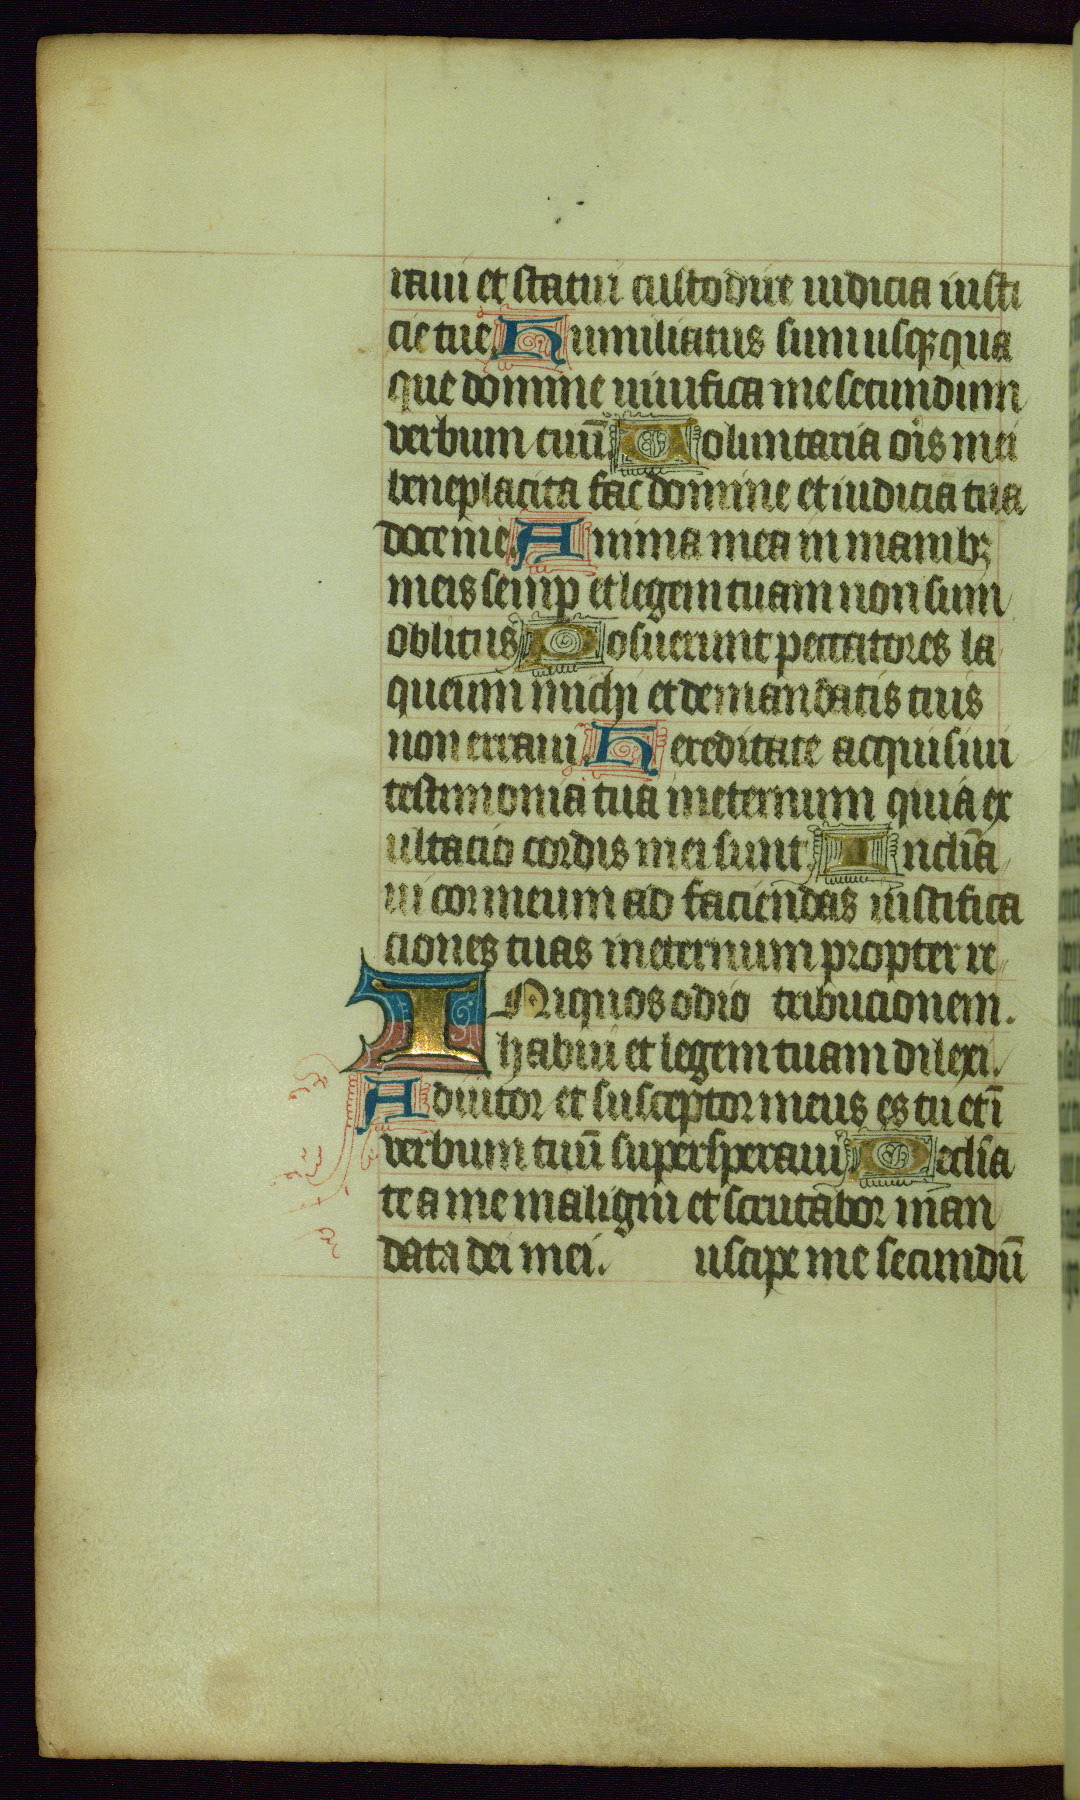 raui et statui custodire iudicia iusti
cie tue. Humiliatus sum usqꝫ qua
que domine uiuifica me secundum
verbum tuū. Voluntaria oris mei
beneplacita fac domine et iudicia tua
doce me. Anima mea in manibꝫ
meis semꝑ et legem tuam non sum
oblitus. Posuerunt peccatores la
queum michi et de mandatis tuis
non erraui. Hereditate acquisiui
testimonia tua ineternum quia ex
ultacio cordis mei sunt. Inclīa
ui cor meum ad faciendas iustifica
ciones tuas ineternum propter re
INiquos odio tribucionem.
habui et legem tuam dilexi.
Adiutor et susceptor meus es tu et ī
verbum tuū supersperaui. Declīa
te a me maligni et scrutabor man
data dei mei. uscipe me secundū